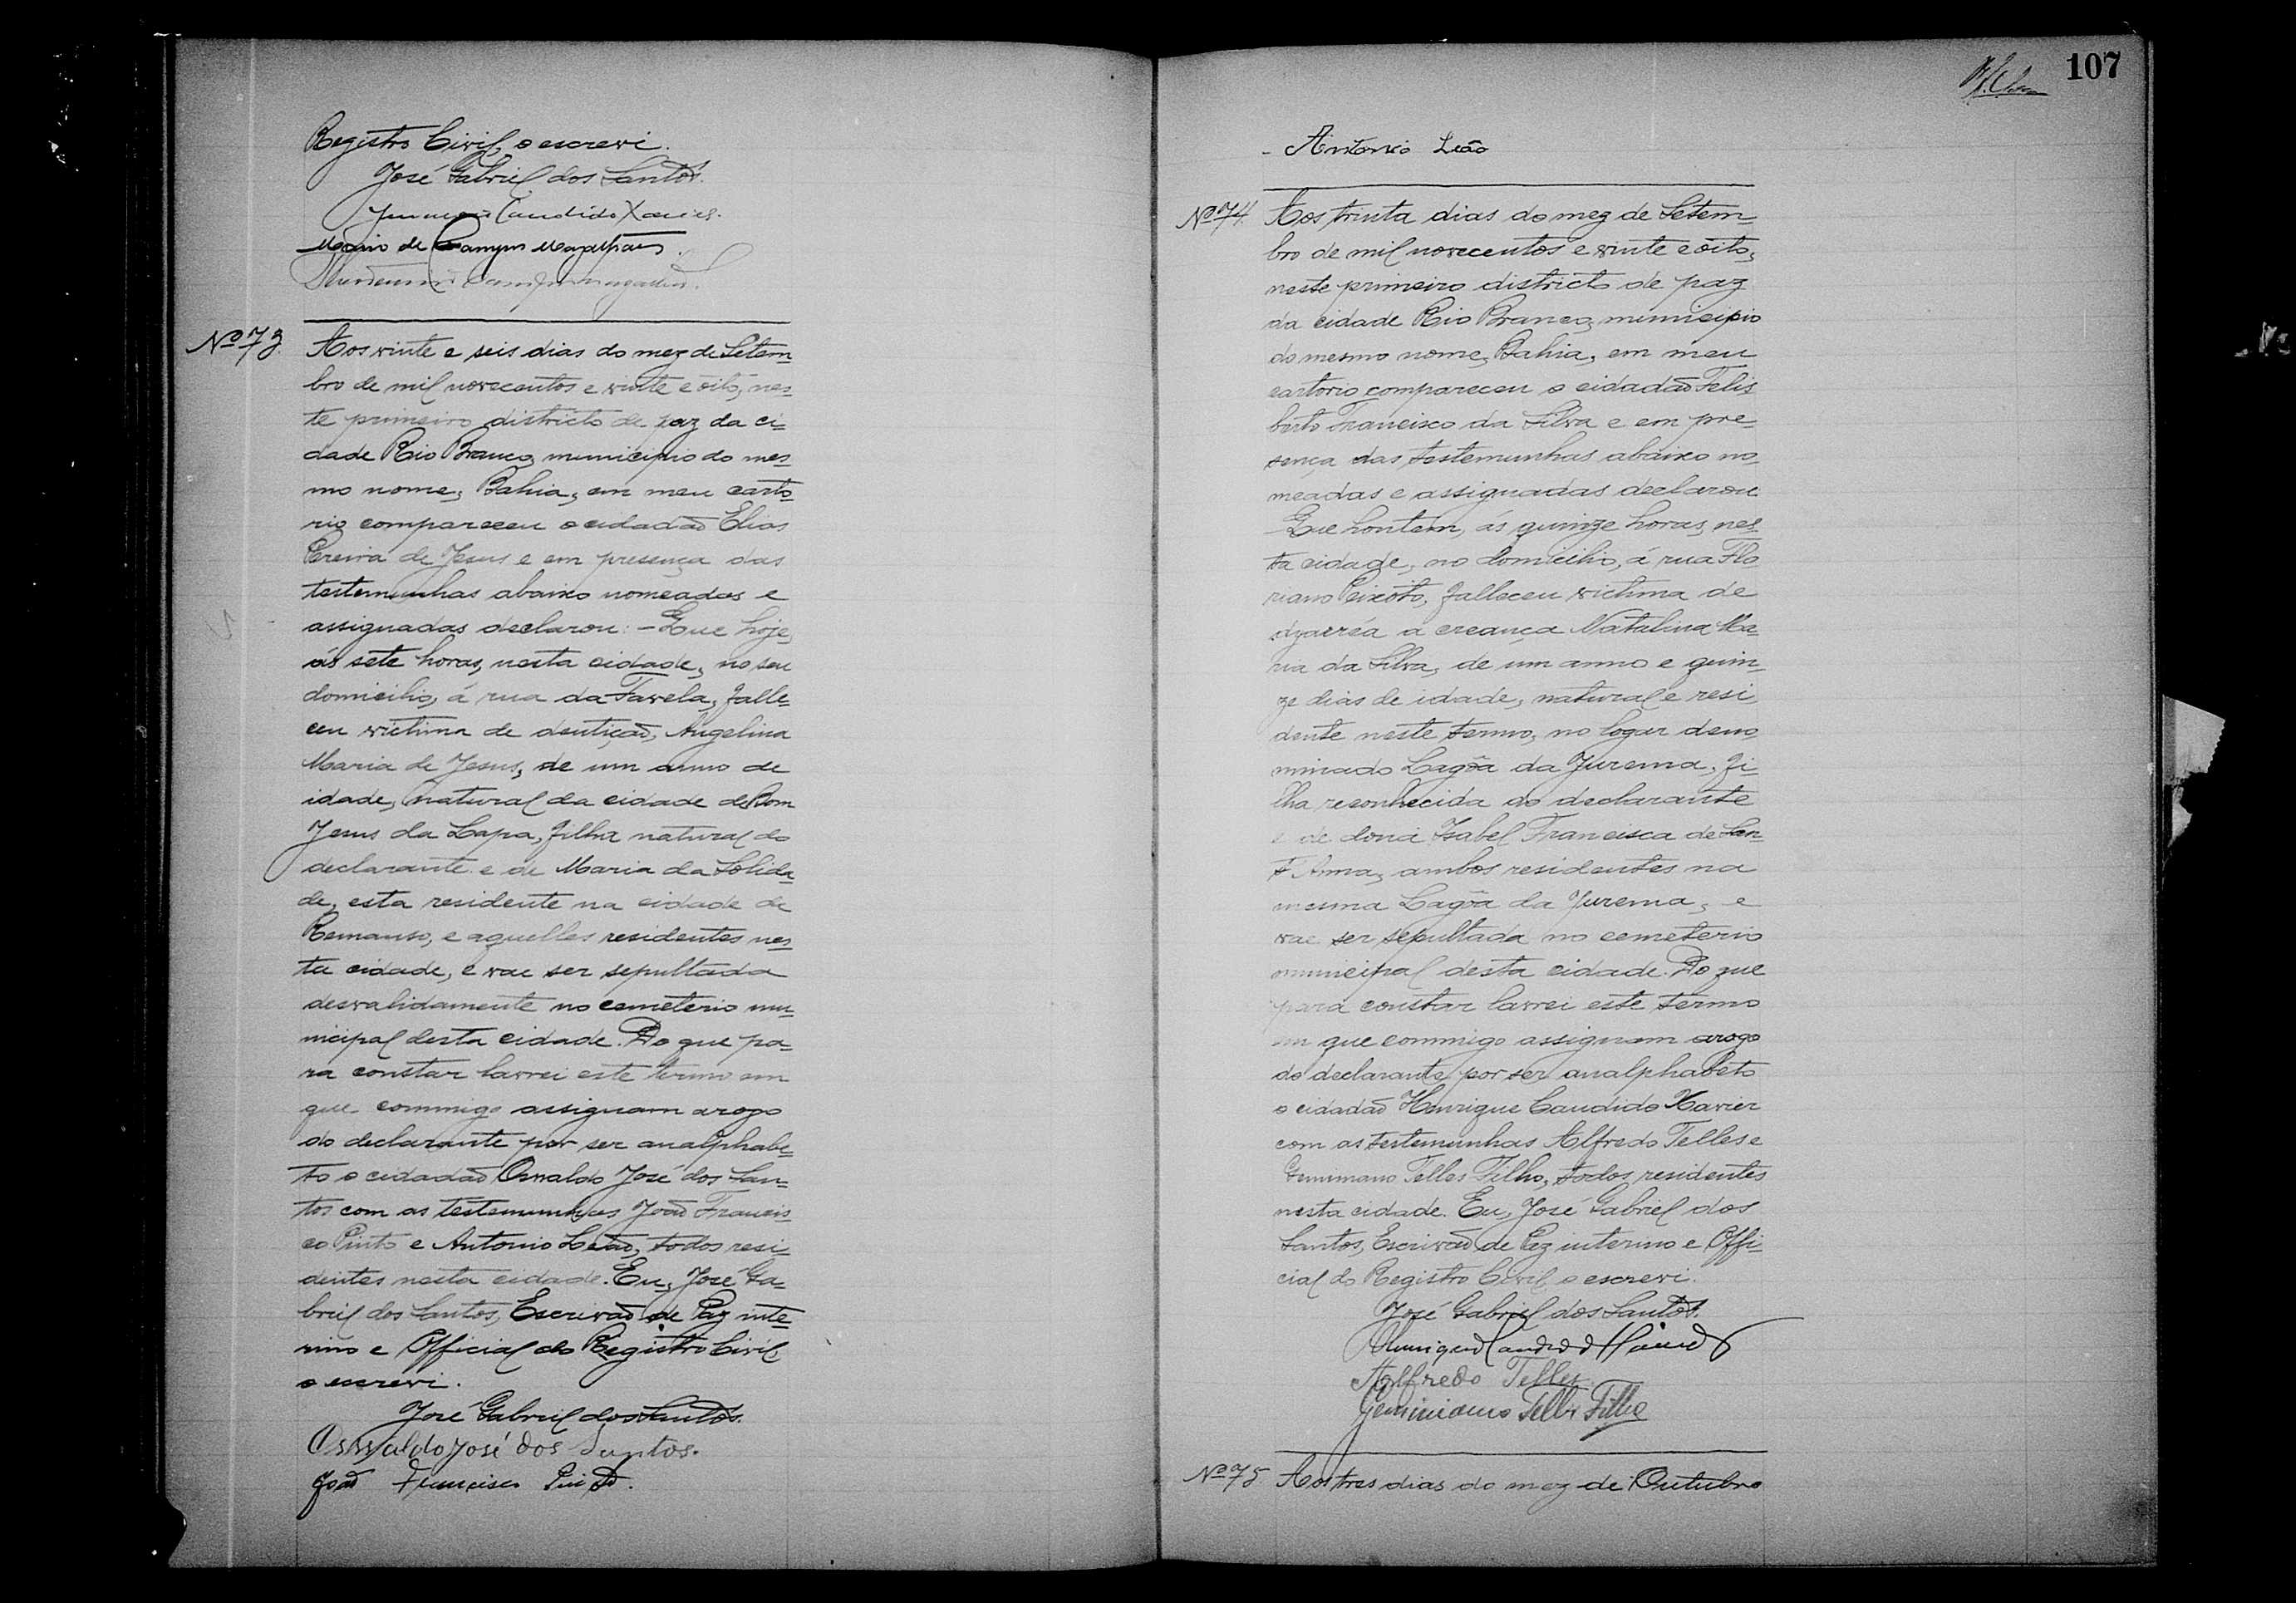 Registro Civil, o escrevi.
José Gabriel dos Santos.
Candido Xavier.
Mario de Campos Magalhães.
Nº 73.
Aos vinte e seis dias do mez de Setem=
bro de mil novecentos e vinte e oito, nes=
te primeiro districto de paz da ci=
dade Rio Branco, municipio do mes=
mo nome, Bahia, em meu carto=
rio compareceu o cidadão Elias
Pereira de Jesus e em presença das
testemunhas abaixo nomeadas e
assignadas declarou: - Que hoje,
ás sete horas, nesta cidade, no seu
domicilio, á rua da Favela, falle=
ceu victima de dentição, Angelina
Maria de Jesus, de um anno de
idade, natural da cidade de Bom
Jesus da Lapa, filha natural do
declarante e de Maria da Solida=
de, esta residente na cidade de
Remanso, e aquelles residentes nes=
ta cidade, e vae ser sepultada
desvalidamente no cemeterio mu=
nicipal desta cidade. Do que pa=
ra constar lavrei este termo em
que commigo assignam arogo
do declarante por ser analphabe=
to o cidadão Oswaldo José dos San=
tos com as testemunhas João Francis=
co Pinto e Antonio Leão, todos resi=
dentes nesta cidade. Eu, José Ga=
briel dos Santos, Escrivão de Paz inte=
rino e Official do Registro Civil,
o escrevi.
José Gabriel dos Santos.
Osswaldo José dos Santos.
João Francisco Pinto.
107
- Antonio Leão
Nº 74.
Aos trinta dias do mez de Setem=
bro de mil novecentos e vinte e oito,
neste primeiro districto de paz
da cidade Rio Branco, municipio
do mesmo nome, Bahia, em meu
cartorio compareceu o cidadão Felis
berto Francisco da Silva e em pre=
sença das testemunhas abaixo no=
meadas e assignadas declarou
- Que hontem, ás quinze horas, nes=
ta cidade, no domicilio, á rua Flo
riano Peixoto, falleceu victima de
dyarréa a creança Natalina Ma=
ria da Silva, de um anno e quin=
ze dias de idade, natural e resi
dente neste termo, no logar deno
minado Lagôa da Jurema, fi=
lha reconhecida do declarante
e de dona Isabel Francisca de San=
t'Anna, ambos residentes na
mesma Lagôa da Jurema, e
vae ser sepultada no cemeterio
municipal desta cidade. Do que
para constar lavrei este termo
em que commigo assignam arogo
do declarante por ser analphabeto
o cidadão Henrique Candido Xavier
com as testemunhas Alfredo Telles e
Geminiano Telles Filho, todos residentes
nesta cidade. Eu, José Gabriel dos
Santos, Escrivão de Paz interino e Offi=
cial do Registro Civil, o escrevi.
José Gabriel dos Santos.
Henrique Candido Xavier
Alfredo Telles
Geminiano Telles Filho
Nº 75.
Aos tres dias do mez de Outubro